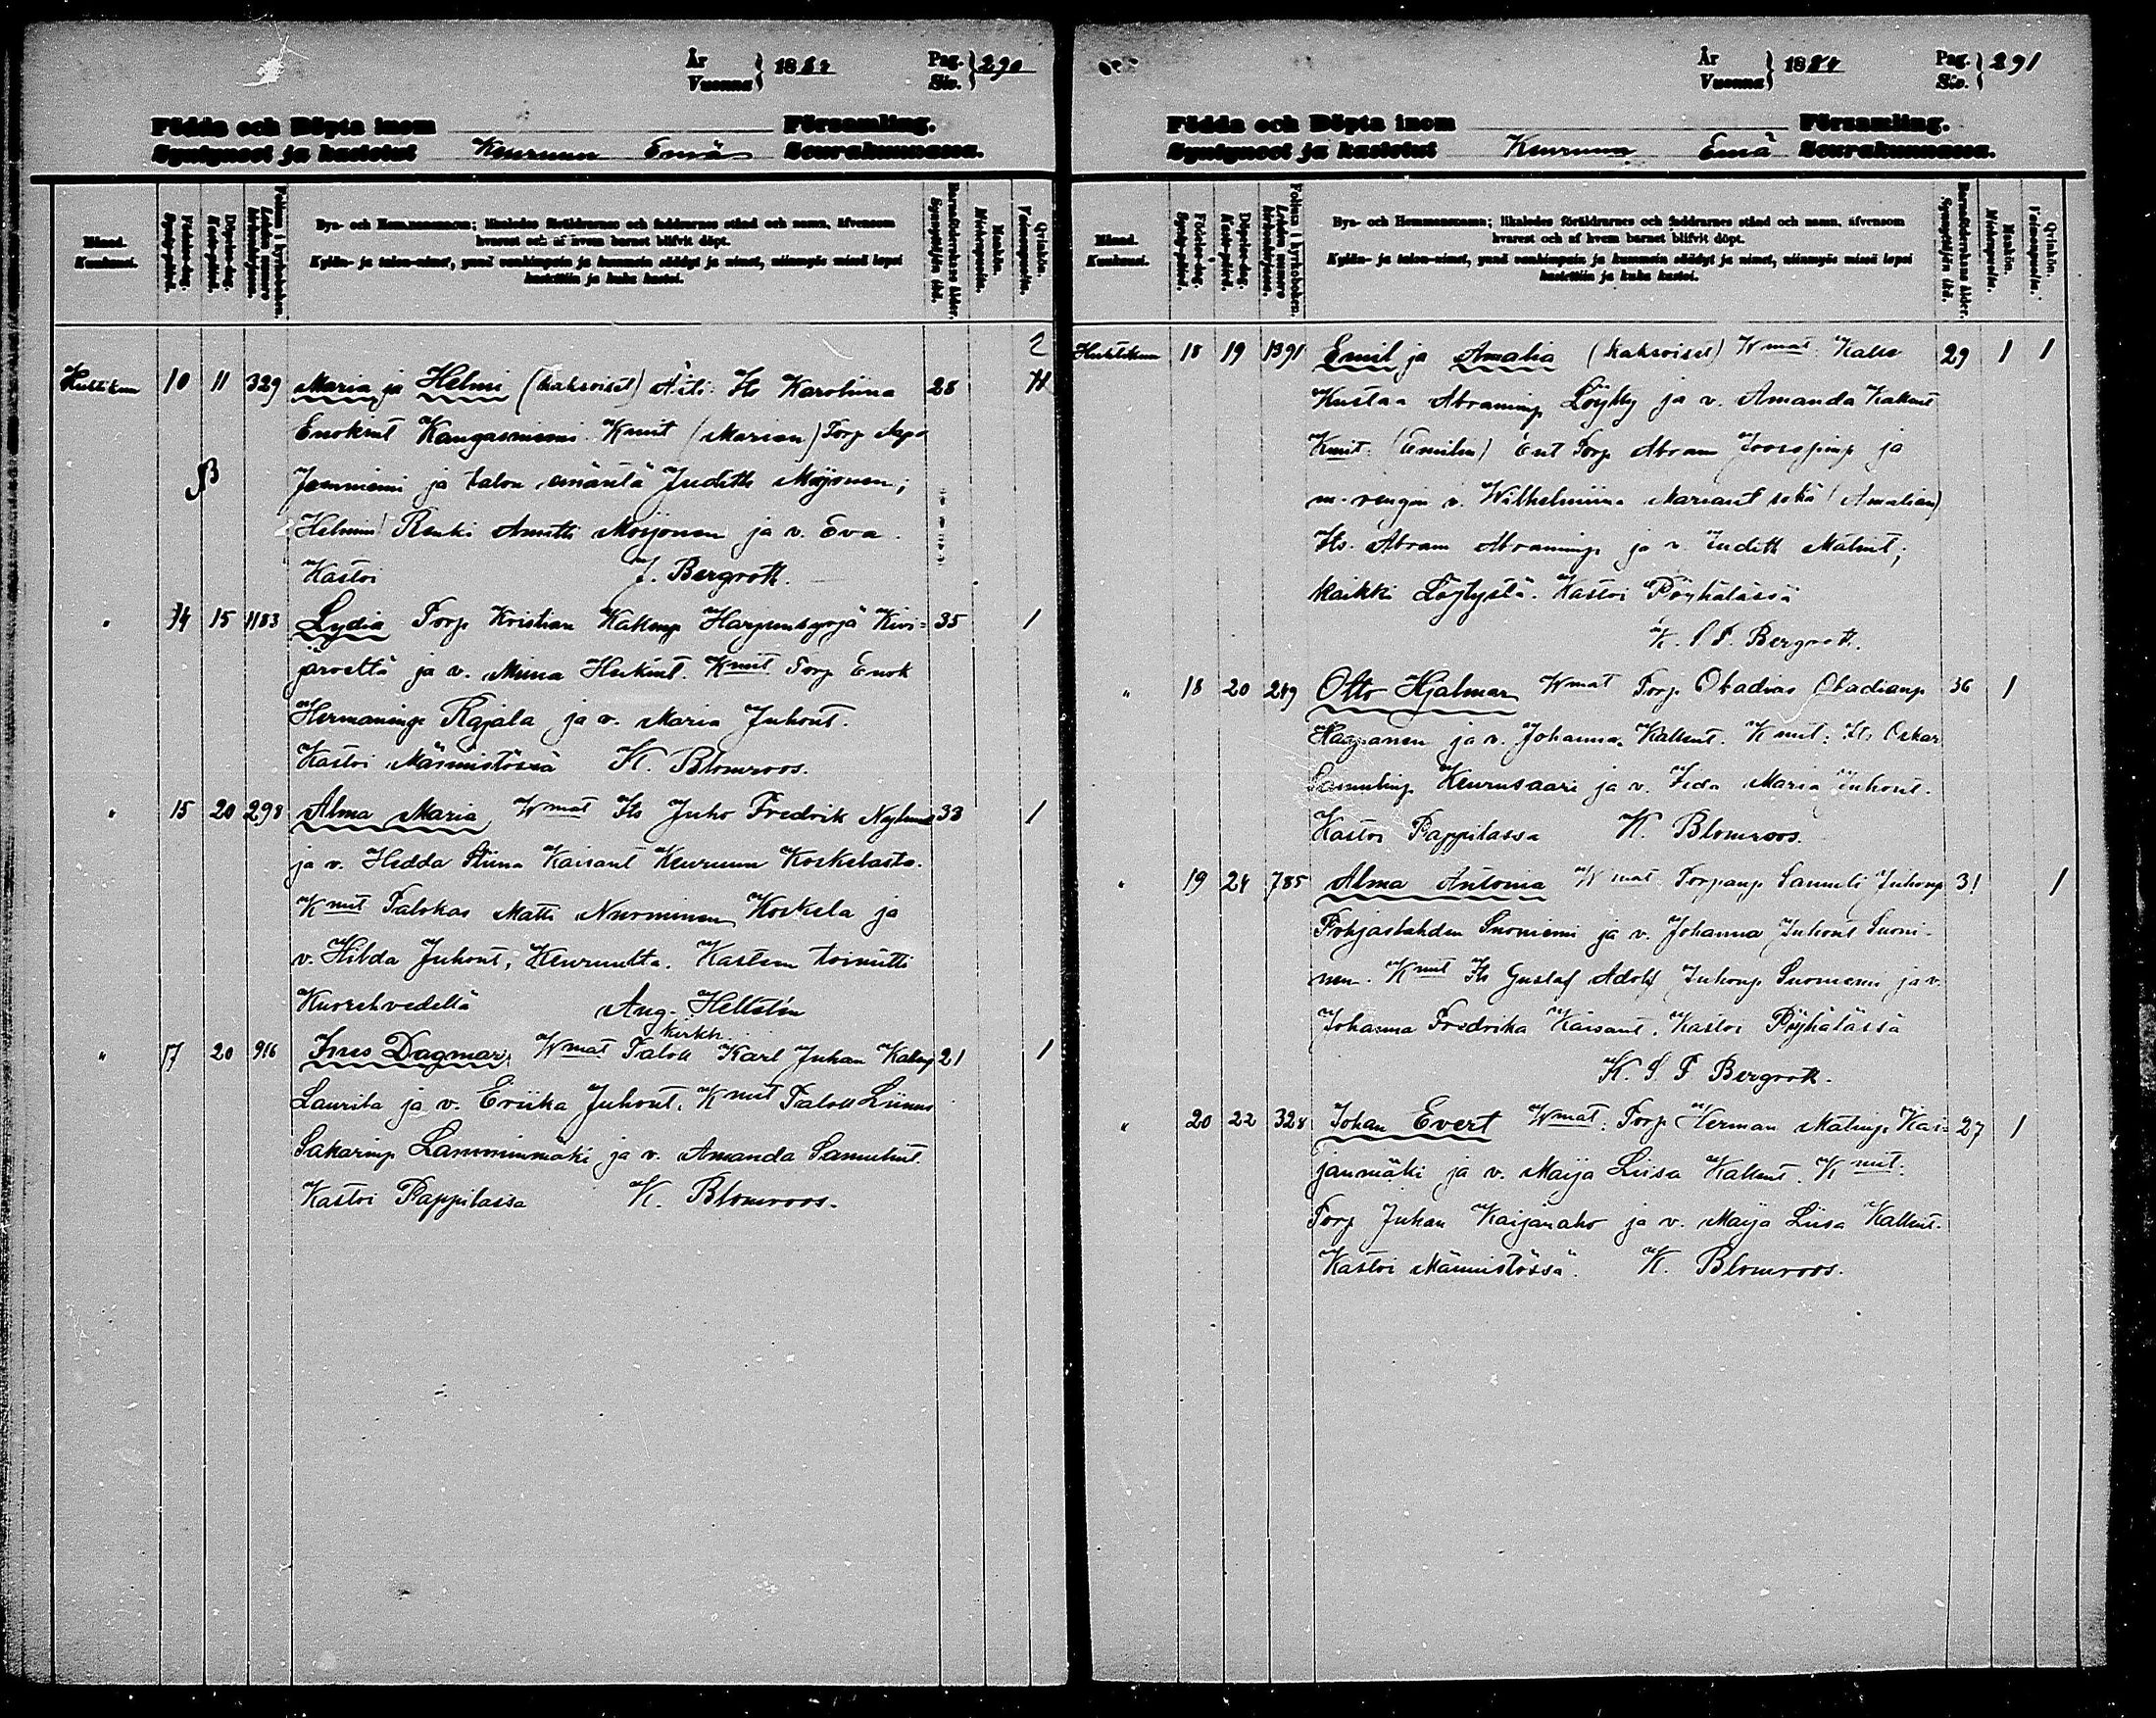 År Vuonna } 1884 Pag. Siv. } 290
Födda och Döpta inom Församling.
Syntyneet ja kastetut Keuruun Emä Seurakunnassa.
Månad. Kuukausi.
Födelse-dag. Synty-päivä.
Döpelse-dag. Kaste-päivä.
Folium i kyrkoboken. Lehden numero kirkonkirjassa.
Bya- och Hemmansnamn; likaledes föräldrarnes och faddrarnes stånd och namn, äfvensom
hvarest och af hvem barnet blifvit döpt.
Kylän- ja talon-nimet, ynnä vanhimpain ja kummein säädyt ja nimet, niinmyös missä lapsi
kastettiin ja kuka kastoi.
Barnaföderskans ålder. Synnyttäjän ikä.
Mankön. Miehenpuolia.
Qvinkön. Vaimonpuolia.
2
Huhtikuu 10 11 329 Maria ja Helmi (kaksoiset) Äiti: Its Karoliina 28
Enokint Kangasniemi Kmit (Marian) Torp Aapo
Jenniemi ja talon emäntä Judith Moijonen;
Helmin) Renki Anutti Moijonen ja v. Eva.
Kastoi J. Bergroth.
" 14 15 1183 Lydia Torp Kristian Kallenp Harjunkyrjä Kivi- 35 1
järveltä ja v. Miina Heikint. Kmit Torp Enok
Hermaninp Rajala ja v. Maria Juhont.
Kastoi Männistössä K. Blomroos.
" 15 20 298 Alma Maria Wmat Its Juho Fredrik Nylund 33 1
ja v. Hedda Stiina Kaisant Keuruun Koskelasta.
Kmit Talokas Matti Nurminen Koskela ja
v. Hilda Juhont, Keuruulta. Kasteen toimitti
Kuorehvedellä Aug. Hellstén
kirkk.
" 17 20 916 Ines Dagmar Wmat Talon Karl Juhan Kallenp 21 1
Laurila ja v. Eriika Juhont. Kmit Talon Liinus
Sakarinp Lamminmäki ja v. Amanda Samulint.
Kastoi Pappilassa K. Blomroos.
År Vuonna } 1884 Pag. Siv. } 291
Födda och Döpta inom Församling.
Syntyneet ja kastetut Keuruun Emä Seurakunnassa.
Månad. Kuukausi.
Födelse-dag. Synty-päivä.
Döpelse-dag. Kaste-päivä.
Folium i kyrkoboken. Lehden numero kirkonkirjassa.
Bya- och Hemmansnamn; likaledes föräldrarnes och faddrarnes stånd och namn, äfvensom
hvarest och af hvem barnet blifvit döpt.
Kylän- ja talon-nimet, ynnä vanhimpain ja kummein säädyt ja nimet, niinmyös missä lapsi
kastettiin ja kuka kastoi.
Barnaföderskans ålder. Synnyttäjän ikä.
Mankön. Miehenpuolia.
Qvinkön. Vaimonpuolia.
Huhtikuu 18 19 1391 Emil ja Amalia (kaksoiset) Wmat. Kalle 29 1 1
Kustaa Abraminp Löytty ja v. Amanda Kallent
Kmit: (Emilin) Ent Torp Abram Joosepinp ja
m-rengin v. Wilhelmiina Mariant sekä (Amalian)
Its. Abram Abraminp ja v. Judith Matint;
kaikki Löytystä. Kastoi Pöyhölässä
K. S. F. Bergroth.
" 18 20 249 Otto Hjalmar Wmat Torp Obadias Obadianp 36 1
Haapanen ja v. Johanna Kallent. Kmit: Its Oskar
Samulinp Keurusaari ja v. Feda Maria Juhont.
Kastoi Pappilassa K. Blomroos.
" 19 24 785 Alma Antonia Wmat. Torpanp Samuli Juhonp 31 1
Pohjaslahden Suoniemi ja v. Johanna Juhont Suoni-
nen. Kmit Its Gustaf Adolf Juhonp Suoniemi ja v.
Johanna Fredrika Kaisant. Kastoi Pöyhölässä
K. S. F Bergroth.
" 20 22 328 Johan Evert Wmat: Torp Herman Matinp. Kai- 27 1
janmäki ja v. Maija Liisa Kallent. Kmit:
Torp Juhan Kaijanaho ja v. Maija Liisa Kallent.
Kastoi Männistössä. K. Blomroos.